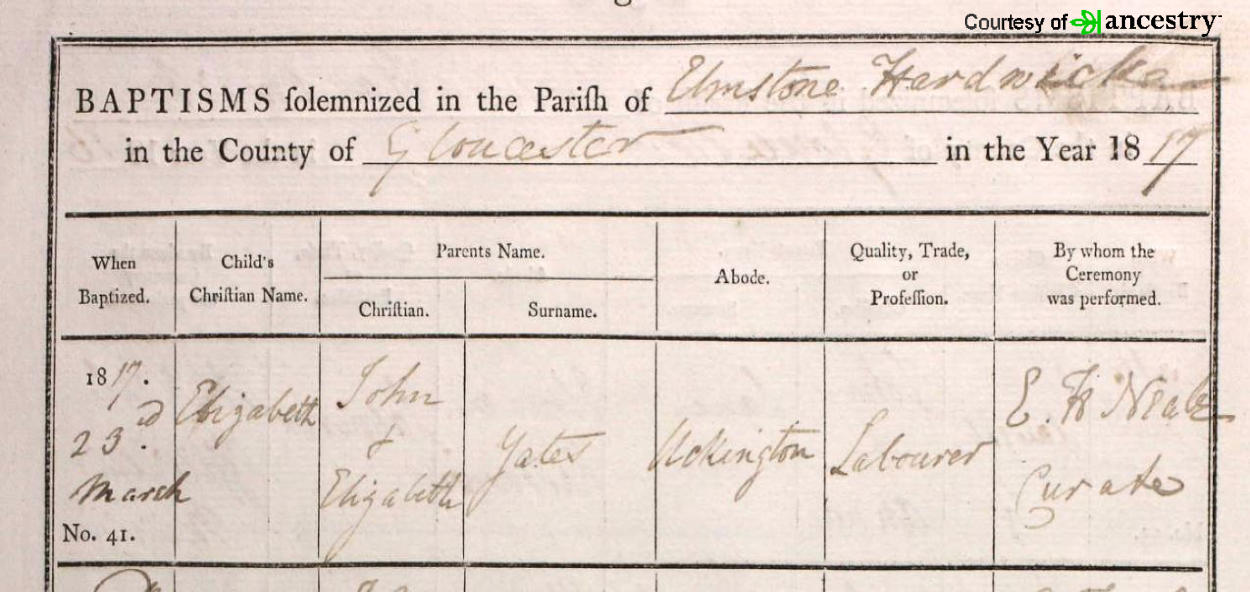 Courtesy of ancestry
BAPTISMS solemnized in the Parish of Elmstone Hardwicke
in the County of Gloucester in the Year 1817
When
Baptized.
Child's
Christian Name.
Parents Name.
Christian.
Surname.
Abode.
Quality, Trade,
or
Profession.
By whom the
Ceremony
was performed.
1817.
23d.
March
No. 41.
Elizabeth
John
&
Elizabeth
Yates
Uckington
Labourer
Curate